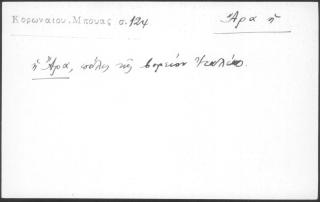 Κορωναίου. Μπούας σ. 124
Ἄρα ἡ
ἡ Ἄρα, πόλις τῆς βορείου Ἰταλίας.